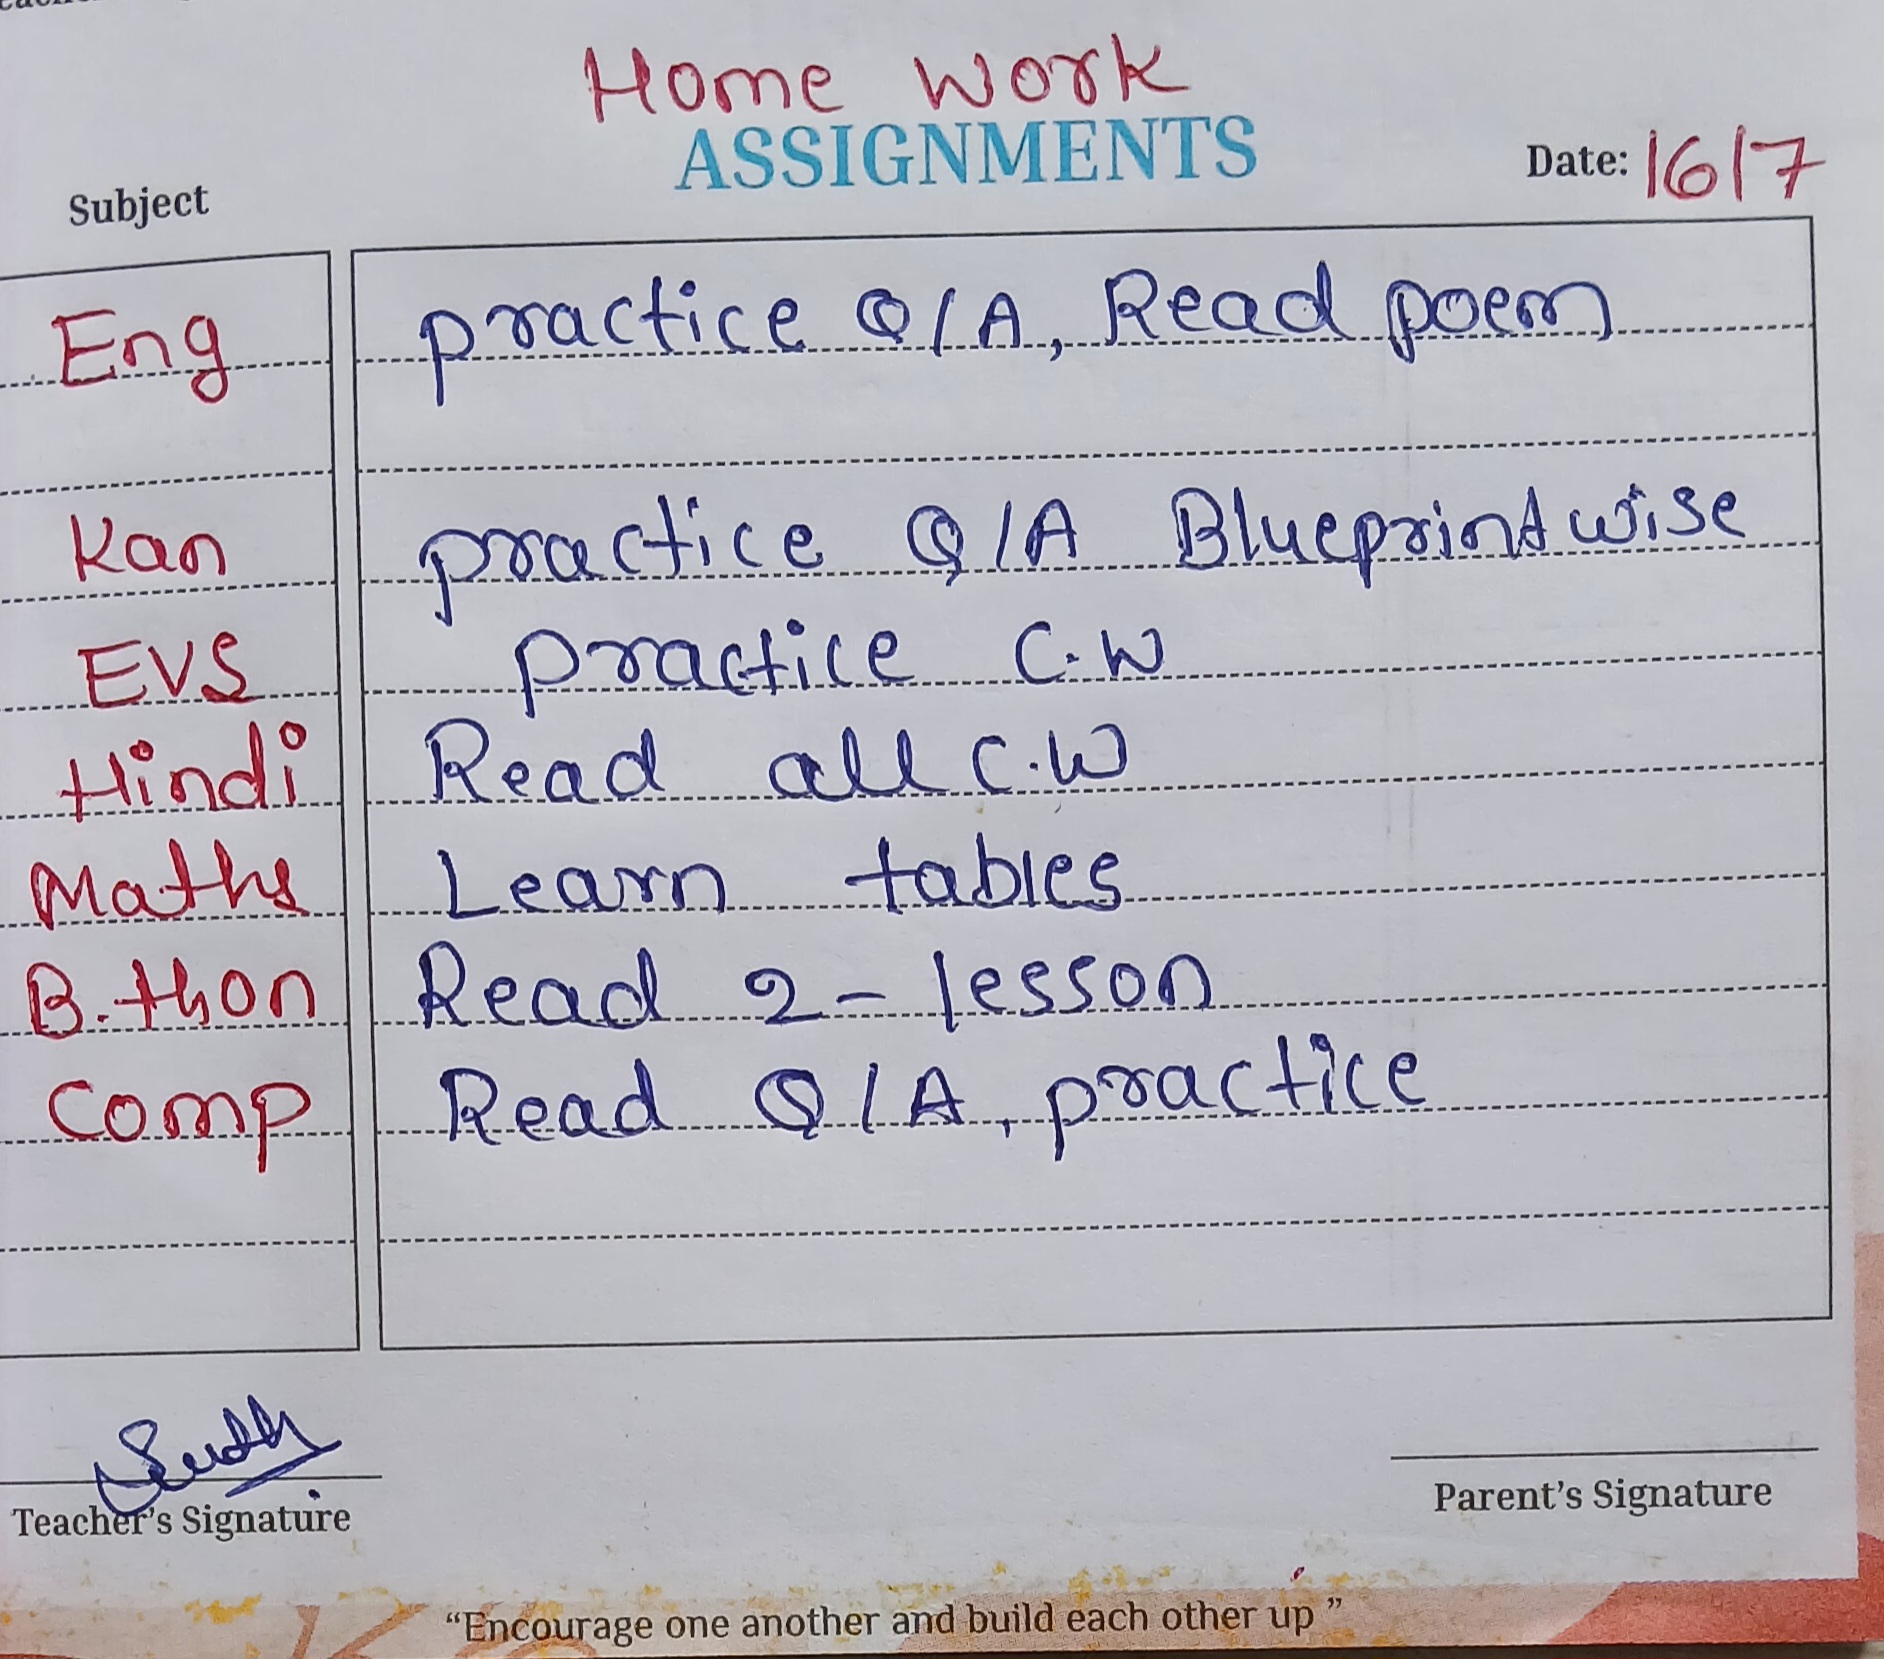 Home Work
ASSIGNMENTS
Date: 16/7
Subject
Eng practice Q/A, Read poem
Kan practice Q/A Blueprint wise
EVS practice C.W
Hindi Read all C.W
Maths Learn tables
B.thon Read 2 - lesson
Comp Read Q/A, practice
Teacher's Signature
Parent's Signature
“Encourage one another and build each other up”